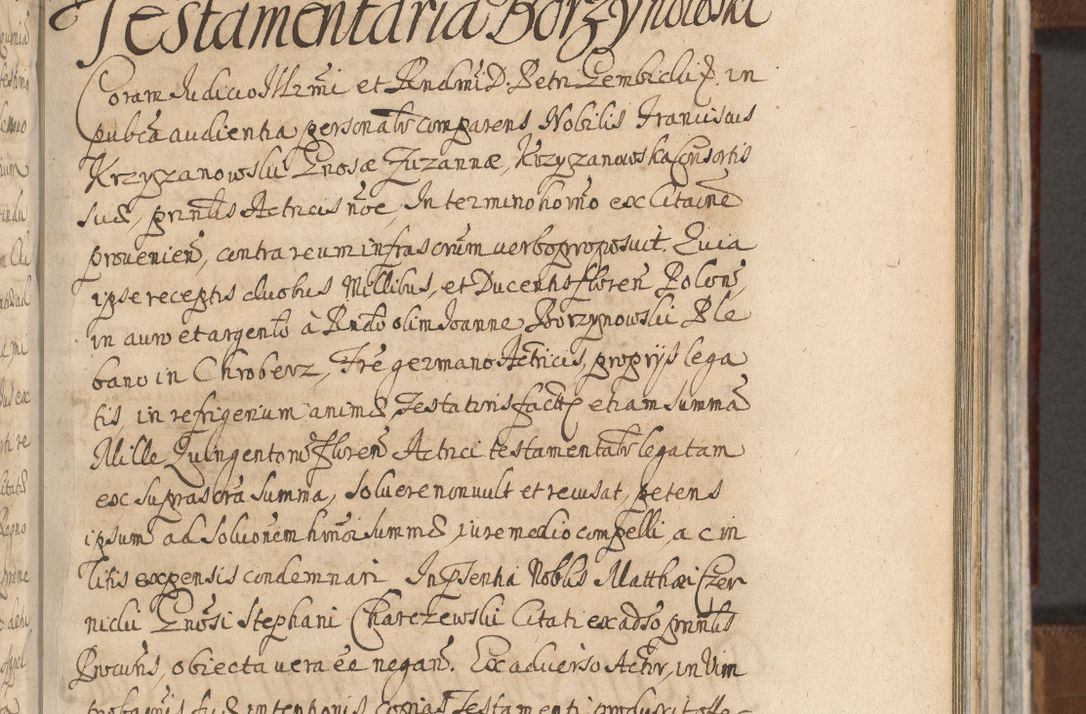 Testamentaria Borzynowski
Coram Judicio Illrmi et Rndmi D. Petri Gembicki P. in
pubca audientia personalr comparens Nobilis Franciscus
Krzyzanowski Gnosae Zuzannae, Krzyzanowska Consortis
suae, prntis Actricis noe, In termino horno ex Citaone
provenien, contra reum infrascrum verbo proposuit. Quia
ipse receptis duobus Millibus, et Ducentis floren Polon,
in auro et argento à Rndo olim Joanne Borzynowski Ple
bano in Chroberz, Fre germano Actricis, propriis lega
tis, in refrigerium animae Testatoris factis etiam summa
Mille Quingentorum floren Actrici testamentalr legatam
ex suprascra summa, solvere non vult et recusat, petens
ipsum ad Soluonem hmoi summae iure medio compelli, ac in
litis expensis condemnari In psentia Noblis Matthaei Czer
nicki Gnosi Stephani Charczewski Citati ex adso prntis
Procuris, obiecta vera ee negan. Ex adverso Actor, in vim
intentionis copias Testamenti produxit